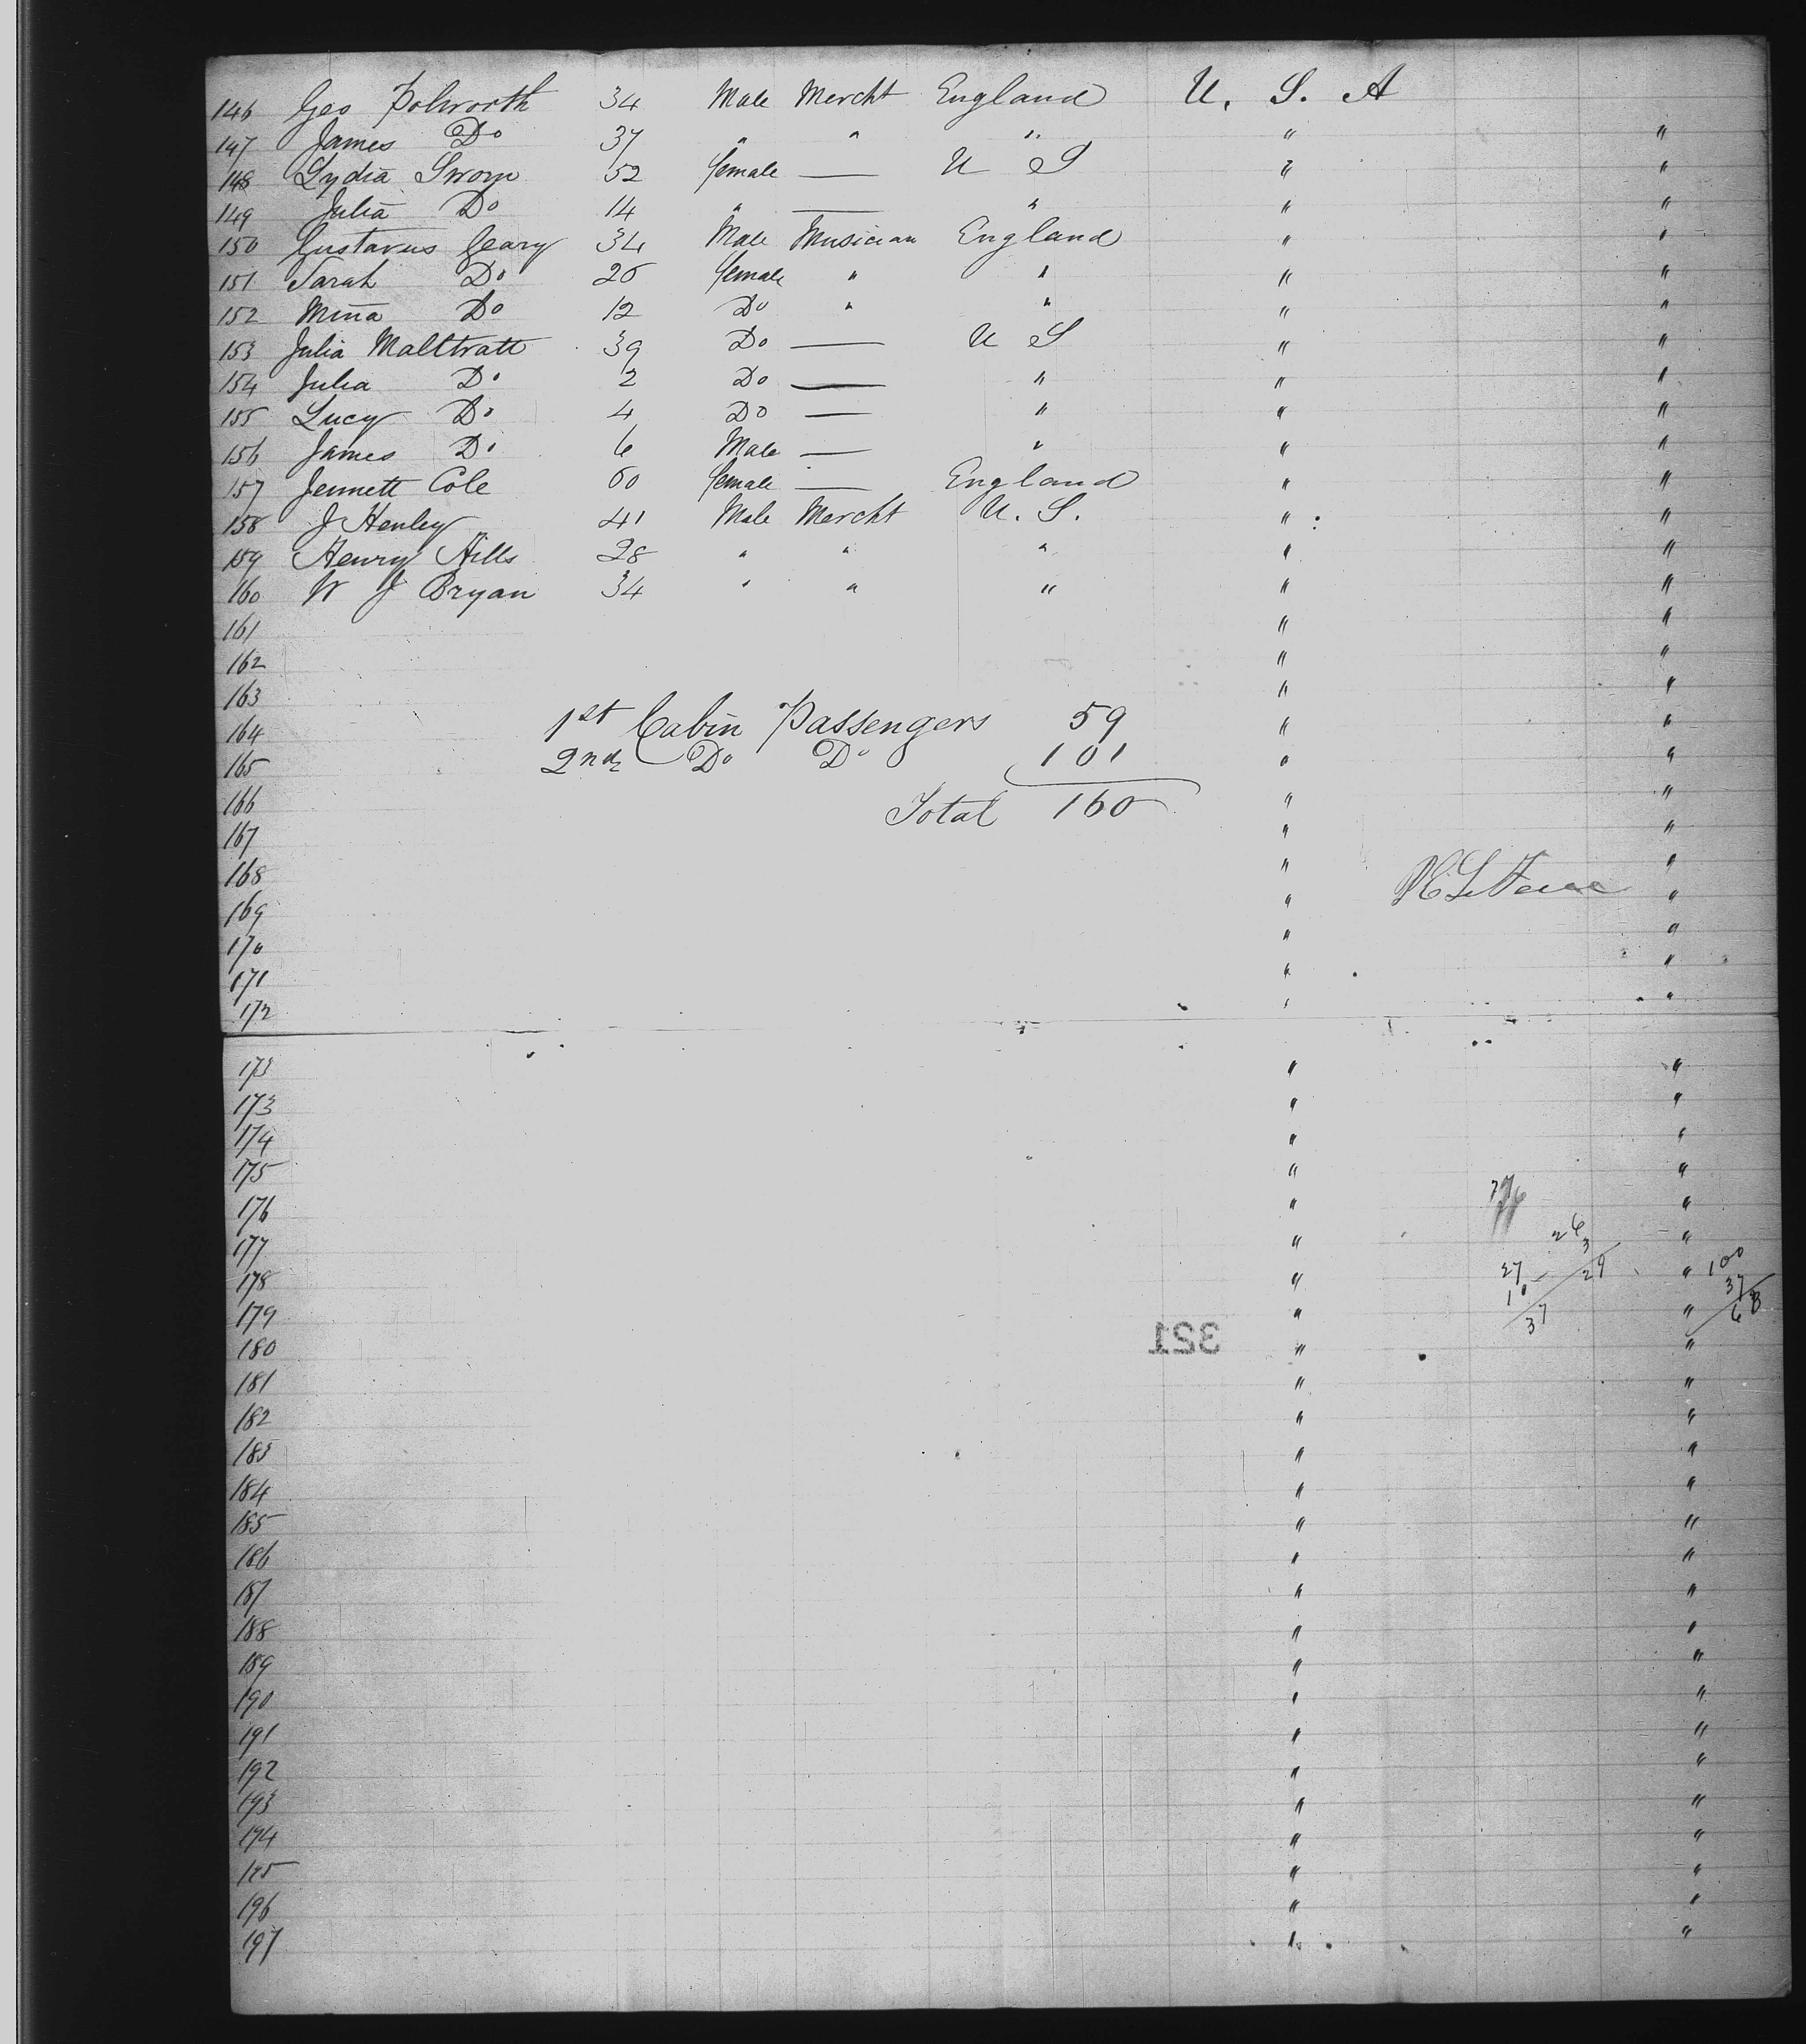 146 Geo Polworth 34 Male Mercht England U. S. A
147 James Do 37 " " " " "
148 Lydia Sworn 52 female — U S " "
149 Julia Do 14 " — " " "
150 Gustavus Geary 34 Male Musician England " "
151 Sarah Do 26 female " " " "
152 Mina Do 12 Do " " " "
153 Julia Malltratt 39 Do — U S " "
154 Julia Do 2 Do — " " "
155 Lucy Do 4 Do — " " "
156 James Do 6 Male — " " "
157 Jennett Cole 60 female — England " "
158 J Henley 41 Male Mercht U. S. " "
159 Henry Hills 28 " " " " "
160 W J Bryan 34 " " " " "
161 " "
162 " "
163 " "
164 1st Cabin Passengers 59 " "
165 2nd Do Do 101 " "
166 Total 160 " "
167 " "
168 " "
169 " "
170 " "
171 " "
172 " "
173 " "
173 " "
174 " "
175 " "
176 " "
177 " 26 "
3
178 " 27 29 " 100
10 37
179 " 37 " 63
321
180 " "
181 " "
182 " "
183 " "
184 " "
185 " "
186 " "
187 " "
188 " "
189 " "
190 " "
191 " "
192 " "
193 " "
194 " "
195 " "
196 " "
197 " "